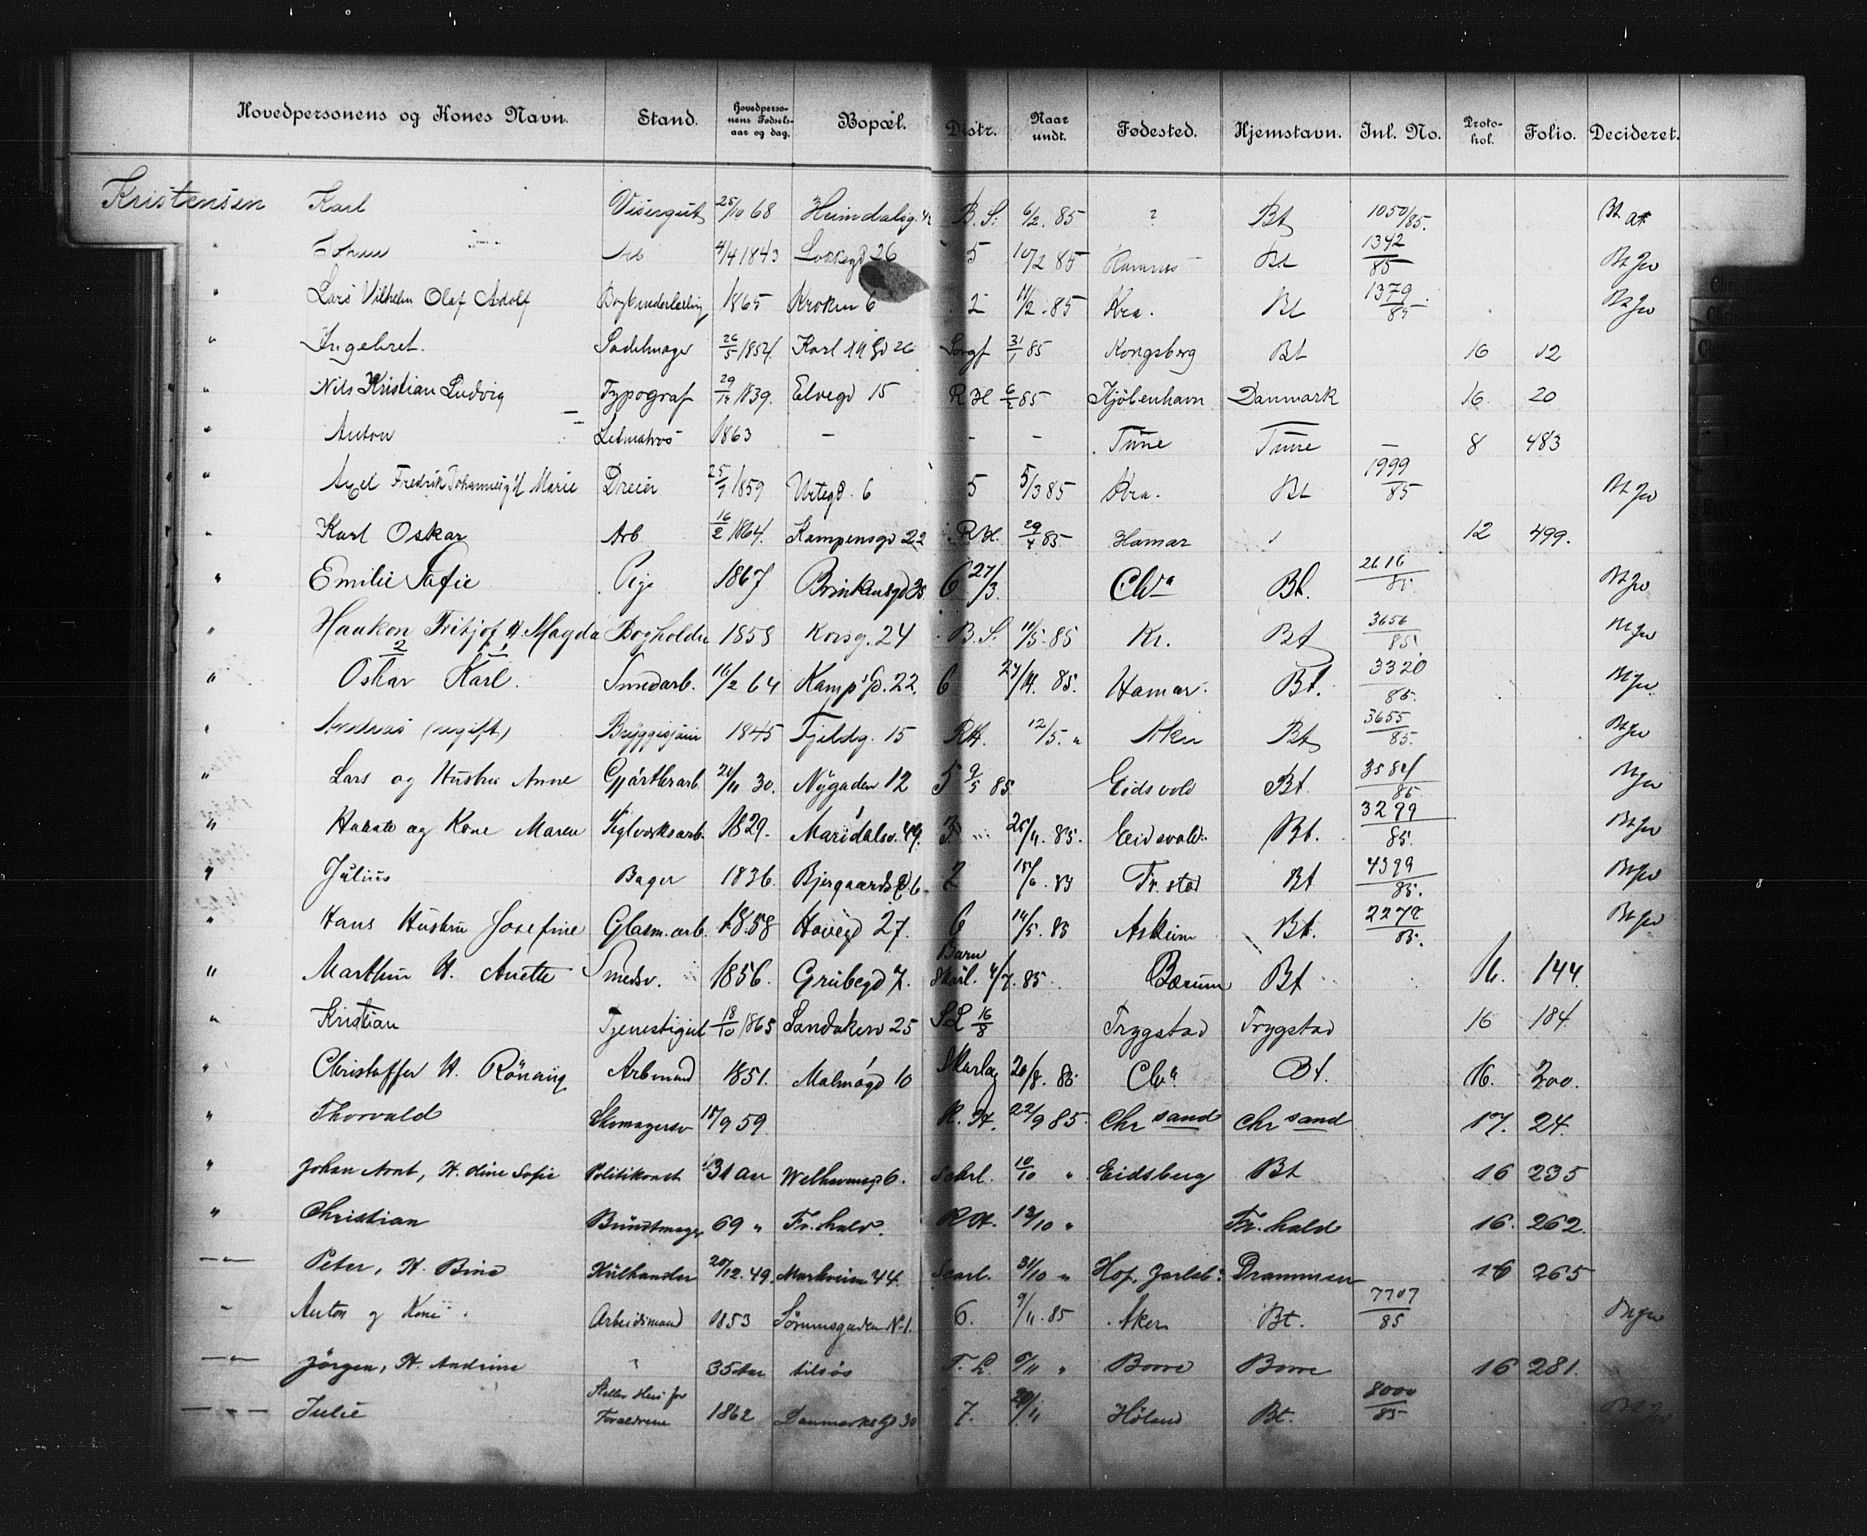 Hovedpersonens og Kones Navn. Stand. Hovedperso-nens Fødsels-aar og dag. Bopæl. Distr. Naar undt. Fødested. Hjemstavn. Inl. No. Proto-kol. Folio. Decideret.
Kristensen Karl Visergut 25/10 68 Heimdalsg. B. S. 6/2. 85 ? Bt 1050/85. Bt
" 4/4 1843 26 5 10/2 85 Bt 1342/85 Bt
" Lars Vilhelm Olaf Adolf Bogbinderlærling 1865 Kroken 6 2 11/2. 85 Kra. Bt 1379/85 Bt
" Ingebret. Sadelmager 26/5 1854 Karl Kongsberg Bt 16 12
" Nils Kristian Ludvig Typograf 1839. Elvegd 15 R H 6/2 85 Kjöbenhavn Danmark 16 20
" Anton Letmatros 1863 – – – Tune Tune – 8 483
" Axel Fredrik Johannes g/ Marie Dreier 25/7 1859 Urtegd. 6 5 5/3 85 Kra. Bt 1999/85 Bt
" Karl Oskar Arb 16/2 1864. Kampensgd 22 R H. 29/4 85 Hamar 12 499.
" Emilie Sofie Pige 1867 6 27/3. Chra Bt. 2616/85. Bt
" Haakon Fritjof H. Magda Bogholder 1858 Korsg. 24 B. S. 11/5. 85 Kr. Bt 3656/85.
" Oskar Karl. Smedarb. 11/2 64 Kamp's Gd. 22. 6 27/4. 85. Hamar. Bt. 3320/85.
" Andreas (ugift) Bryggesjauer 1845 Fjeldg. 15 RH. 12/5. " Aker Bt 3655/85. Bt
" Lars og Hustru Anne Gjörtlerarb. 30. Nygaden 12 5 9/5 85 Eidsvold Bt. 3584/85
" og Kone Maren Teglværksarb. 1829. Maridalsv. 49. 3 25/4. 85. Eidsvold. Bt. 3299/85. Bt
" Julius Bager 1836. Bjergaardsgd 6. 2 Fr. stad Bt 4399/85.
" Hans Hustru Josefine Glasm. arb. 1858 27. 6 14/5. 85 Askim Bt. 85. Bt
" Marthin H. Anette Smedsv. 1856. Grubegd 7. Barn Skarl. 4/7. 85. Bærum Bt 16. 144.
" Kristian Tjenestegut 18/10 1865 Sandakerv 25 S L 16/8 Trygstad Trygstad 16 184.
" Christoffer H. Arbmand 1851. Malmögd 10 Skarlag 26/8. 85 Chra Bt. 16. 200.
" Thorvald Skomagersv 15/9 59. R. H. 22/9 85. Chr sand Chr sand 17. 24.
" Johan Arnt, H. Oline Sofie Politikonst 31 aar Welhavensgd 6. Scarl. 10/10 " Eidsberg Bt 16 235
" Christian Bundtmager 69 " Fr. hald. R H. 12/10 " Fr. hald 16. 262.
—"— Peter, H. Kulhandler 20/12. 49. Markveien 44. Scarl. 31/10 " Hof, Jarlsb. Drammen 16 265
" Anton og Kone Arbeidsmand 1853 Sörumsgaden No 1. 6. 9/11. 85 Aker Bt. 7707/85
—"— Jörgen, H. Andrine " 35 Aar tilsös T. L. " Borre Borre 16 281.
—"— Julie Steller Hus for Forældrene 1862 Danmarks Gd 30 7. 20/11 Höland Bt. 8000/85